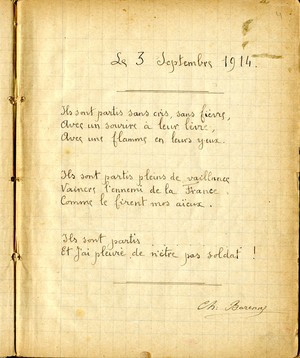 Le 3 Septembre 1914.
Ils sont partis sans cris, sans fièvre,
Avec un sourire à leur lèvre,
Avec une flamme en leurs yeux.
Ils sont partis pleins de vaillance
Vaincre l'ennemi de la France
Comme le firent nos aïeux.
Ils sont partis
Et j'ai pleuré de n'être pas soldat !
Ch.